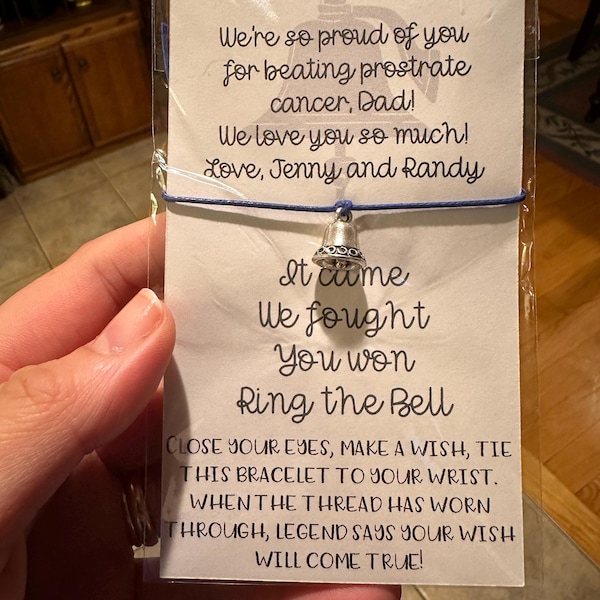 We're so proud of you
for beating prostrate
cancer, Dad!
We love you so much!
Love, Jenny and Randy
It came
We fought
You won
Ring the Bell
CLOSE YOUR EYES, MAKE A WISH, TIE
THIS BRACELET TO YOUR WRIST.
WHEN THE THREAD HAS WORN
THROUGH, LEGEND SAYS YOUR WISH
WILL COME TRUE!